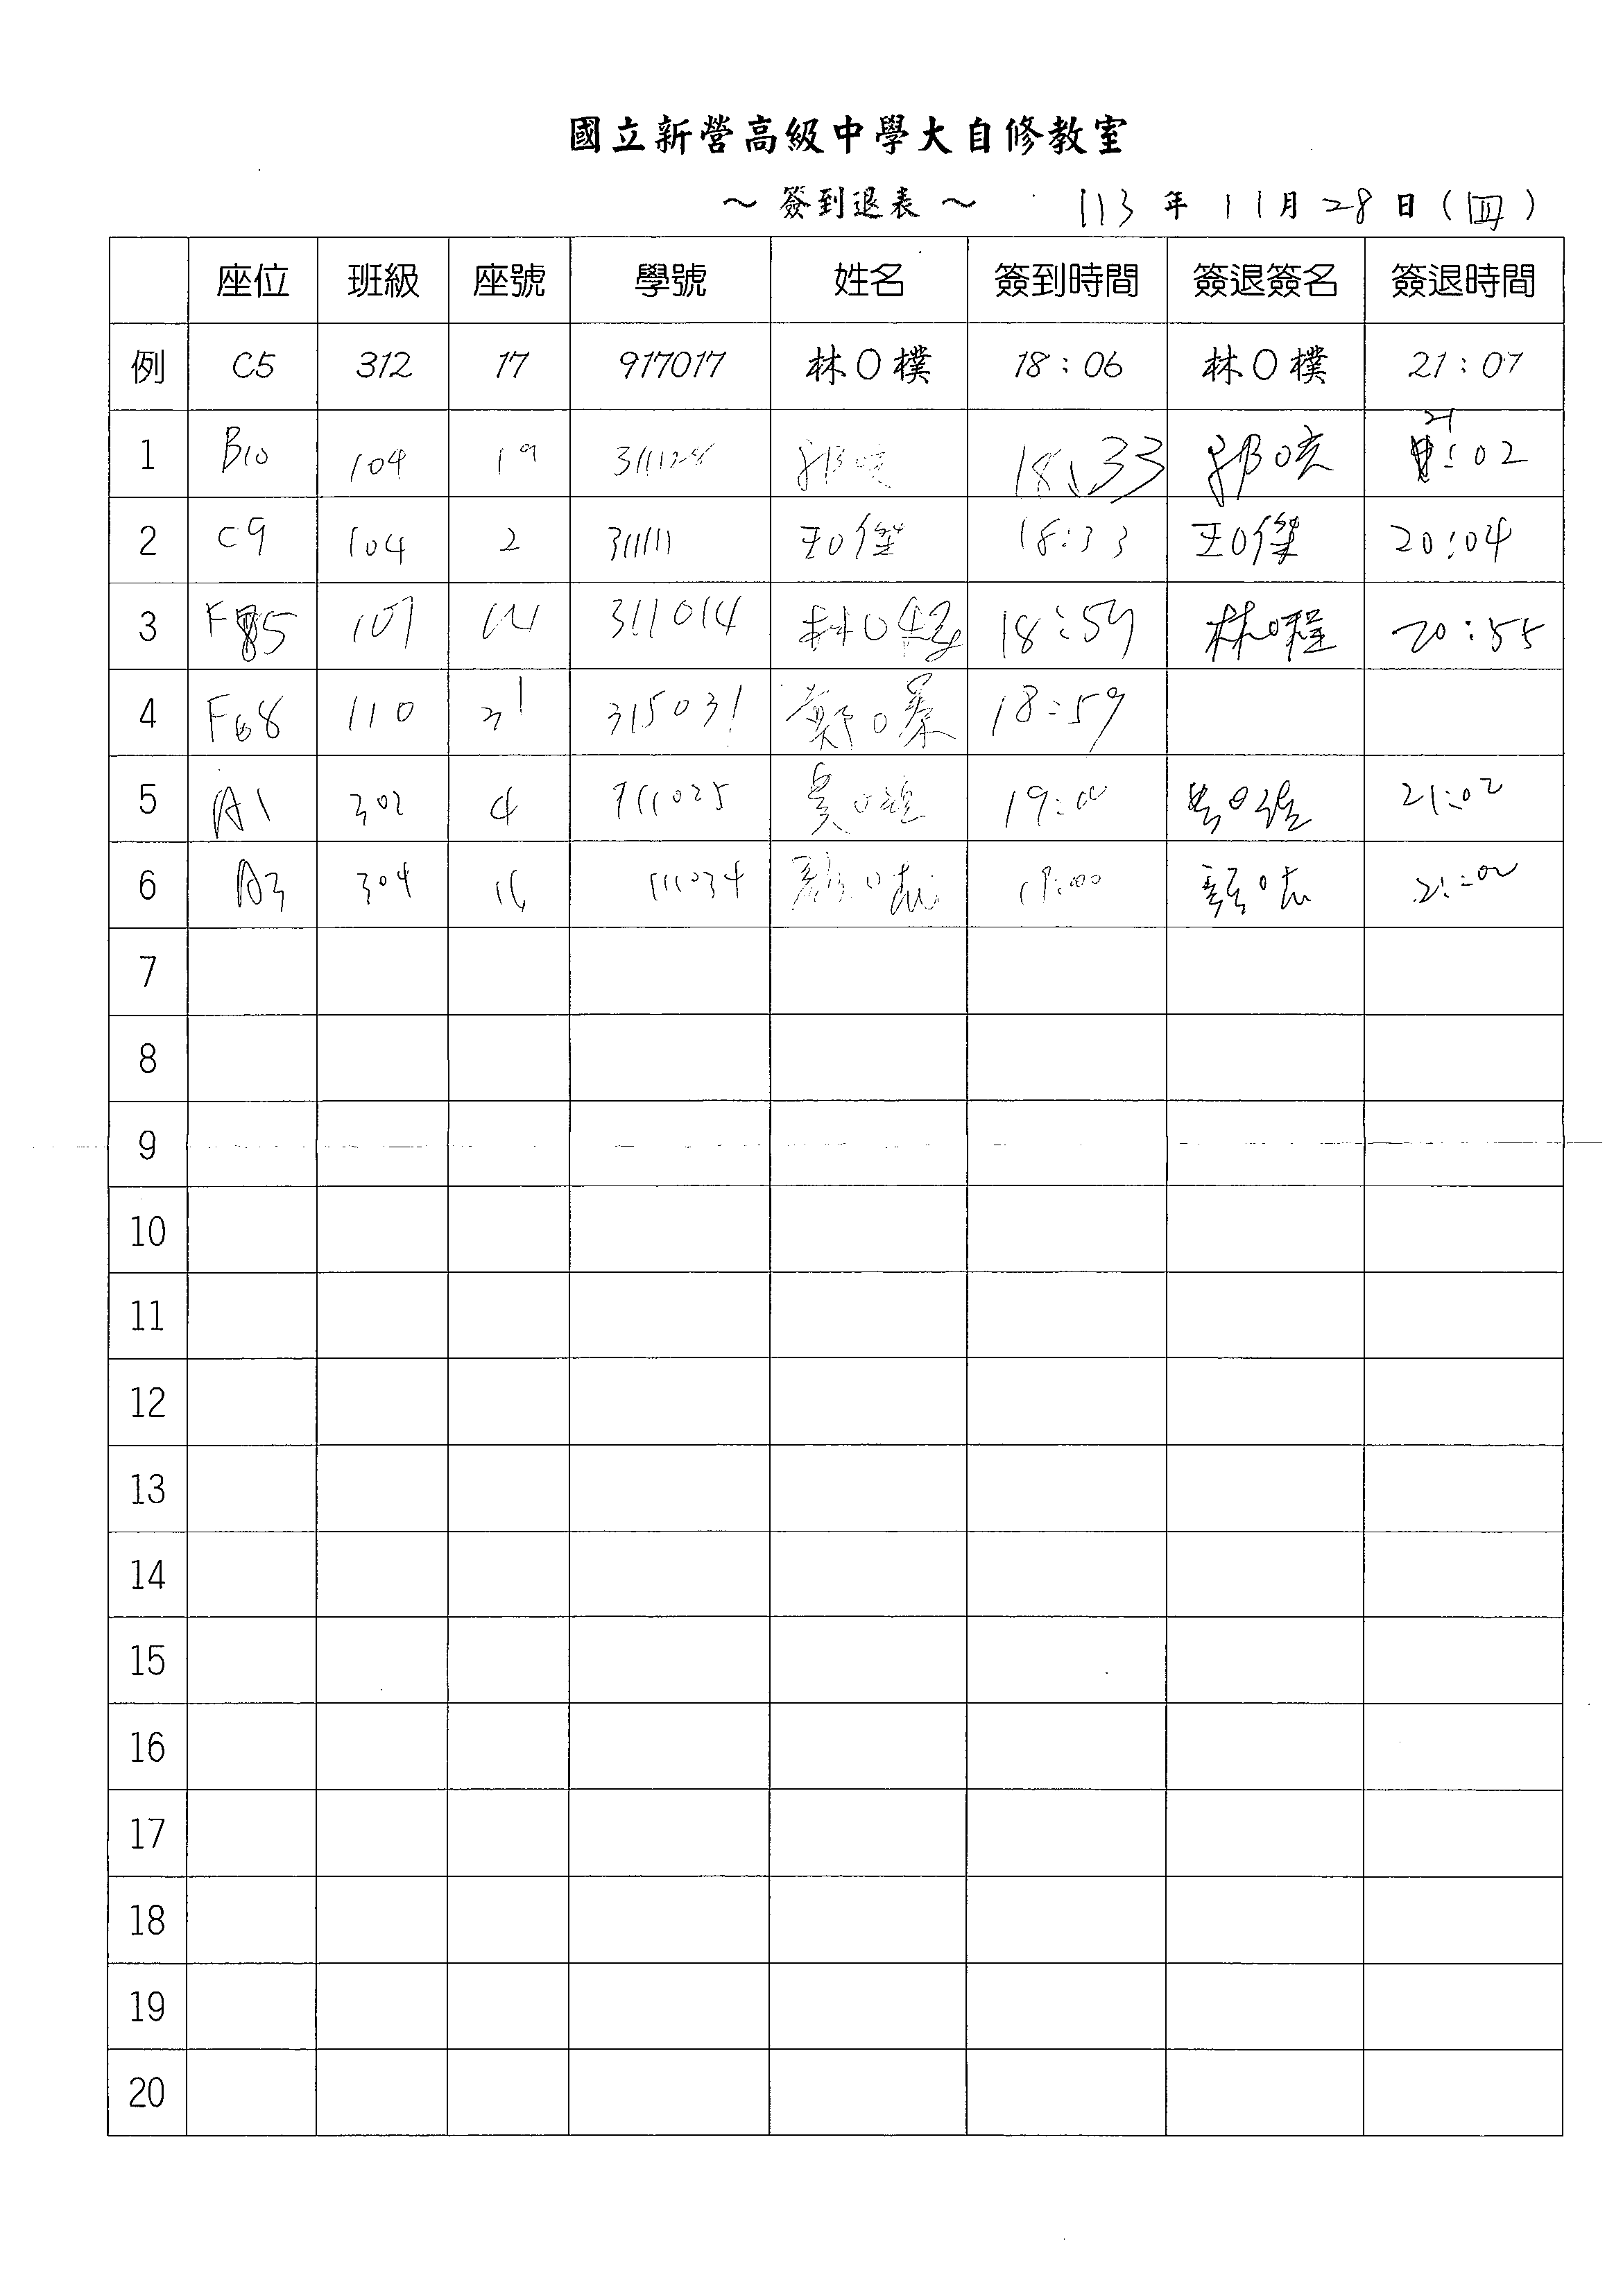 國立新營高級中學大自修教室
～ 簽到退表 ～ 113 年 11 月 28 日 (四)
座位 班級 座號 學號 姓名 簽到時間 簽退簽名 簽退時間
例 C5 312 17 917017 林O樸 18:06 林O樸 21:07
1 B10 104 19 311128 郭O 18:33 郭O 21:02
2 C9 104 2 311111 王O傑 18:33 王O傑 20:04
3 F5 107 14 311014 林O程 18:59 林O程 20:55
4 F8 110 31 315031 鄭O 18:59
5 A1 302 4 111025 吳O 19:00 吳O 21:02
6 A3 304 16 111034 顏O 19:00 顏O 21:00
7
8
9
10
11
12
13
14
15
16
17
18
19
20